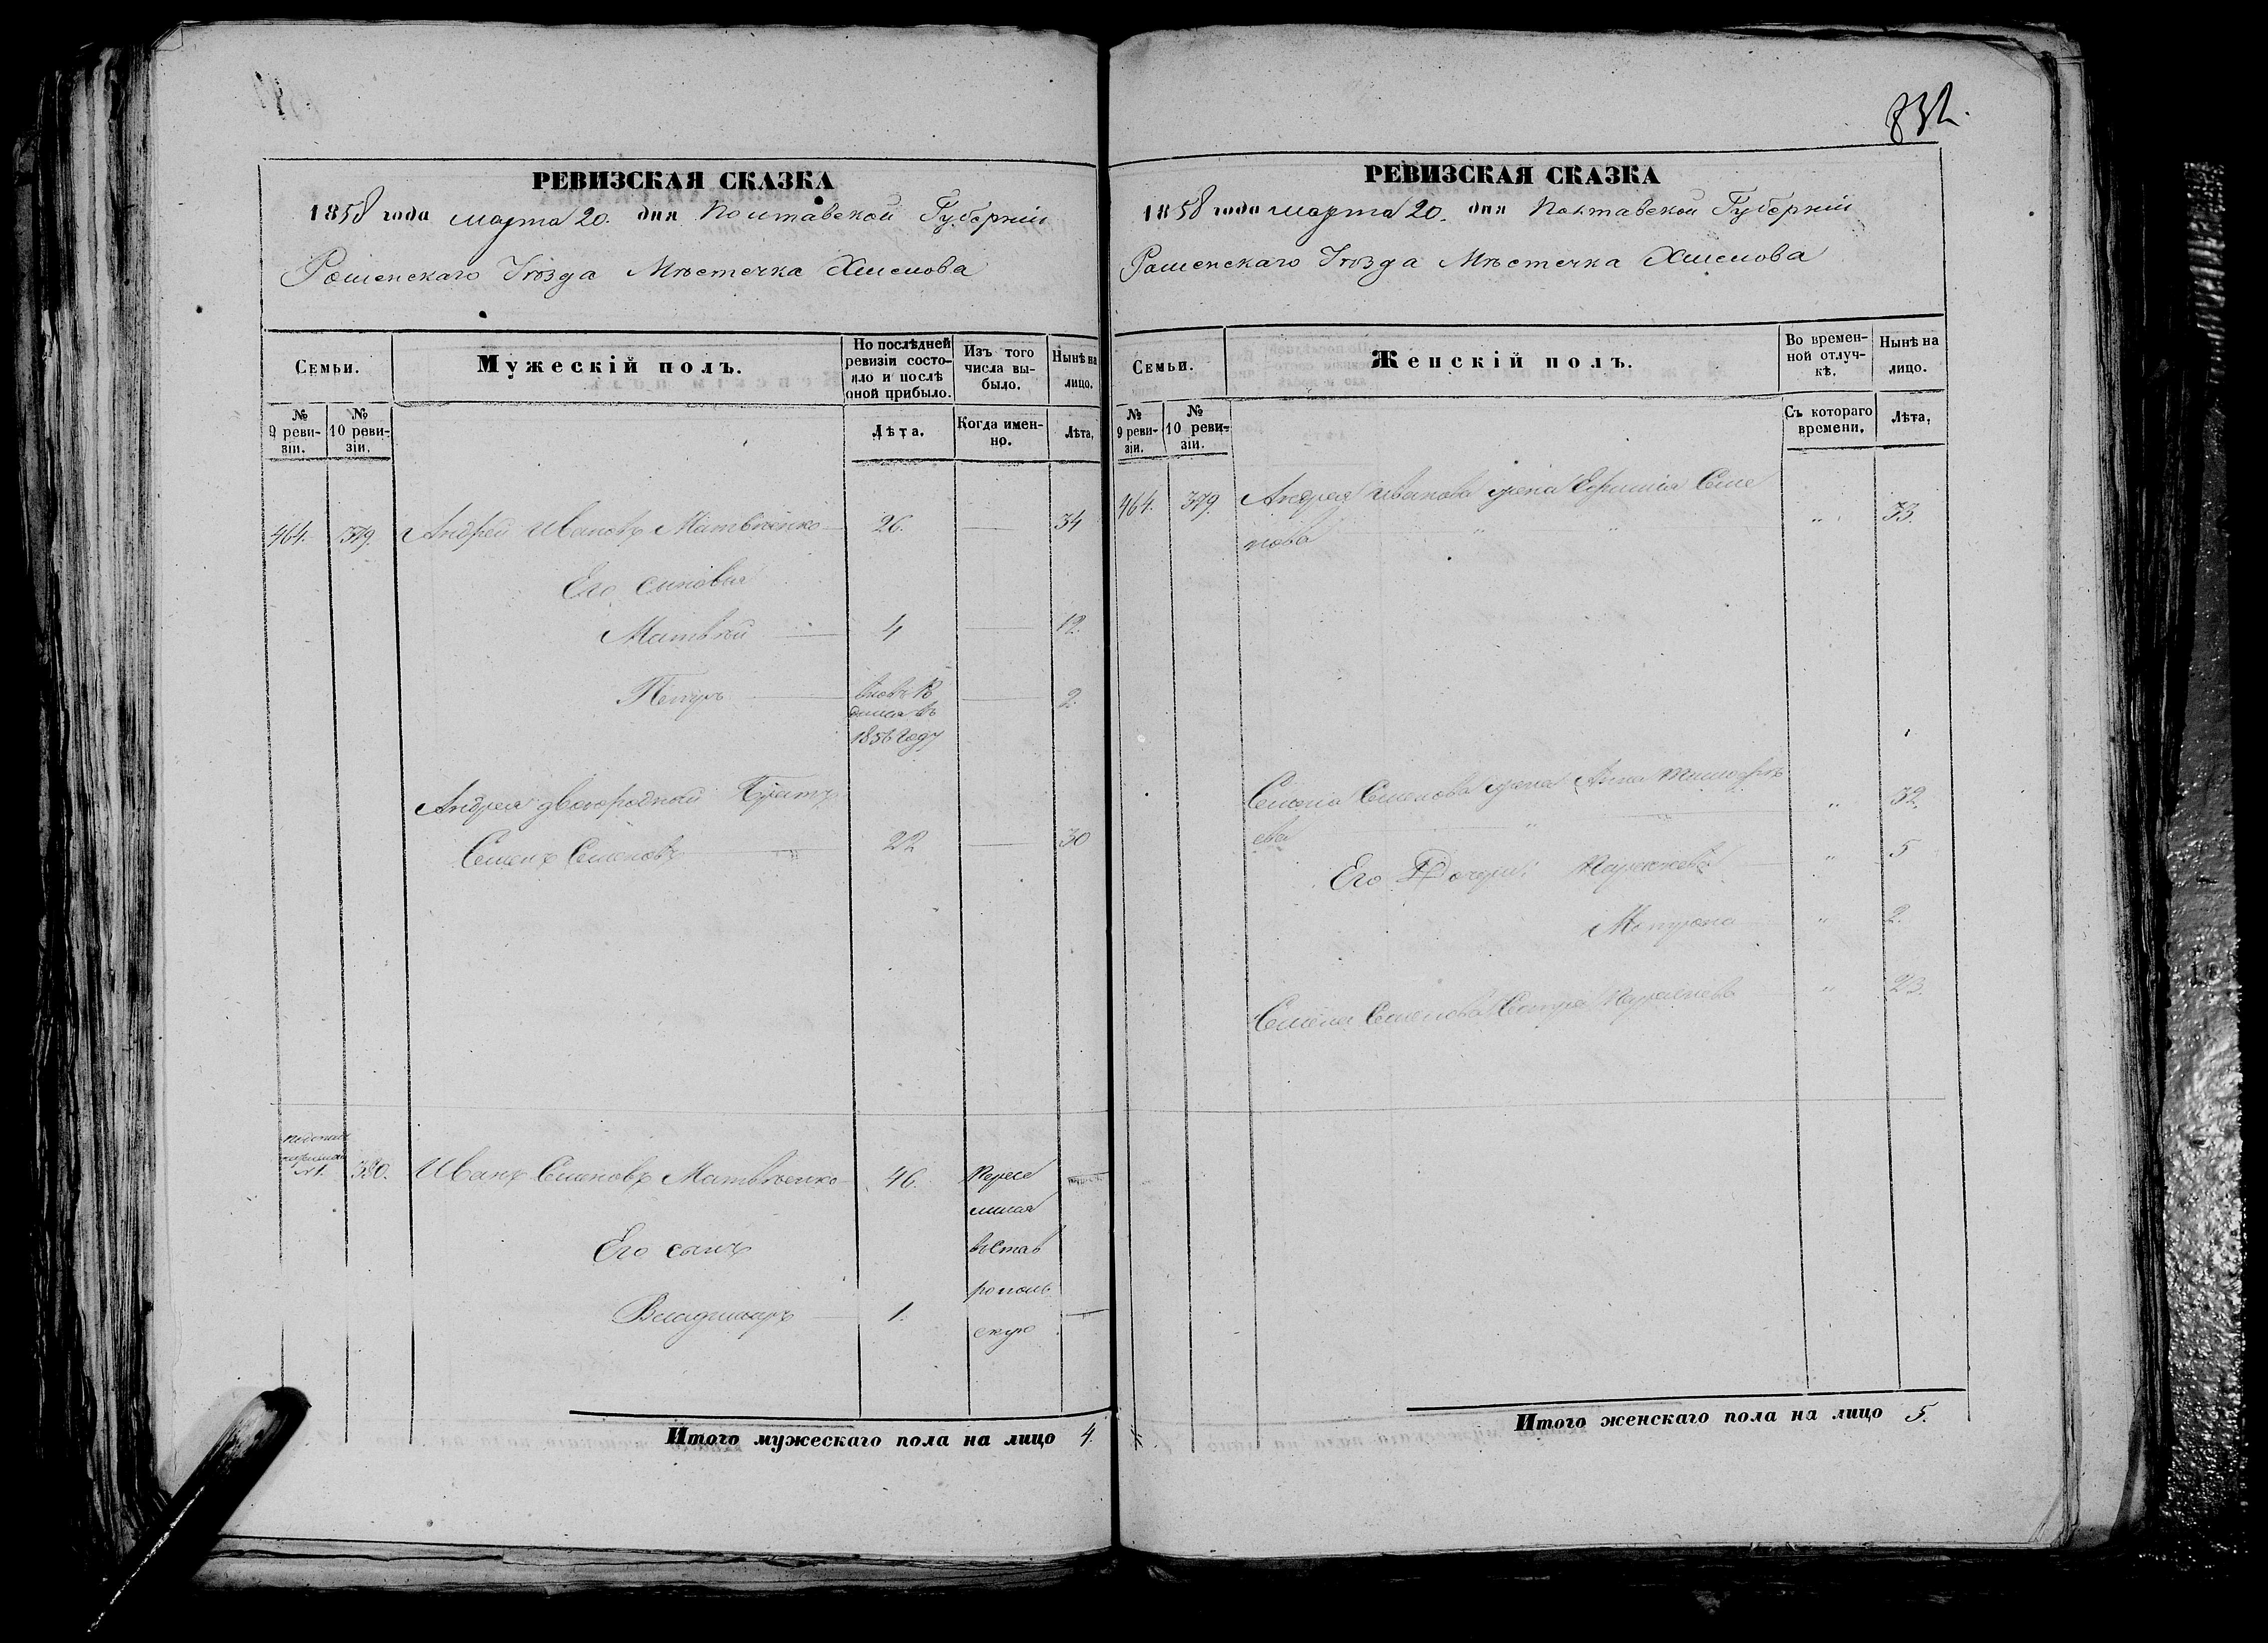 832.
РЕВИЗСКАЯ СКАЗКА
1858 года марта 20. дня Полтавской Губерніи
Роменскаго Уѣзда Мѣстечка Хмелова
Семьи.
Мужескій полъ.
По послѣдней ревизіи состояло и послѣ оной прибыло.
Изъ того числа выбыло.
Нынѣ на лицо.
№ 9 ревизіи.
№ 10 ревизіи.
Лѣта.
Когда именно.
Лѣта.
464. 379. Андрей Ивановъ Матвѣенко 26. 34
Его сыновья
Матвѣй 4 12.
Петръ 2.
1856 году
Андрея двоюродной Братъ
Семенъ Семеновъ 22 30
№ 1. 380. Иванъ Семеновъ Матвѣенко 46. Пересе
лился
въ Став
рополь
скую
Его сынъ
Владимиръ 1.
Итого мужескаго пола на лицо 4.
РЕВИЗСКАЯ СКАЗКА
1858 года марта 20. дня Полтавской Губерніи
Роменскаго Уѣзда Мѣстечка Хмелова
Семьи.
Женскій полъ.
Во временной отлучкѣ.
Нынѣ на лицо.
№ 9 ревизіи.
№ 10 ревизіи.
Съ котораго времени.
Лѣта.
464. 379. Андрея Иванова жена Ефимія Семе
нова " 33.
Семена Семенова жена Анна Тимофѣ
ева " 32.
Его Дочери: " 5
Матрона " 2.
Семена Семенова Сестра " 23.
Итого женскаго пола на лицо 5.